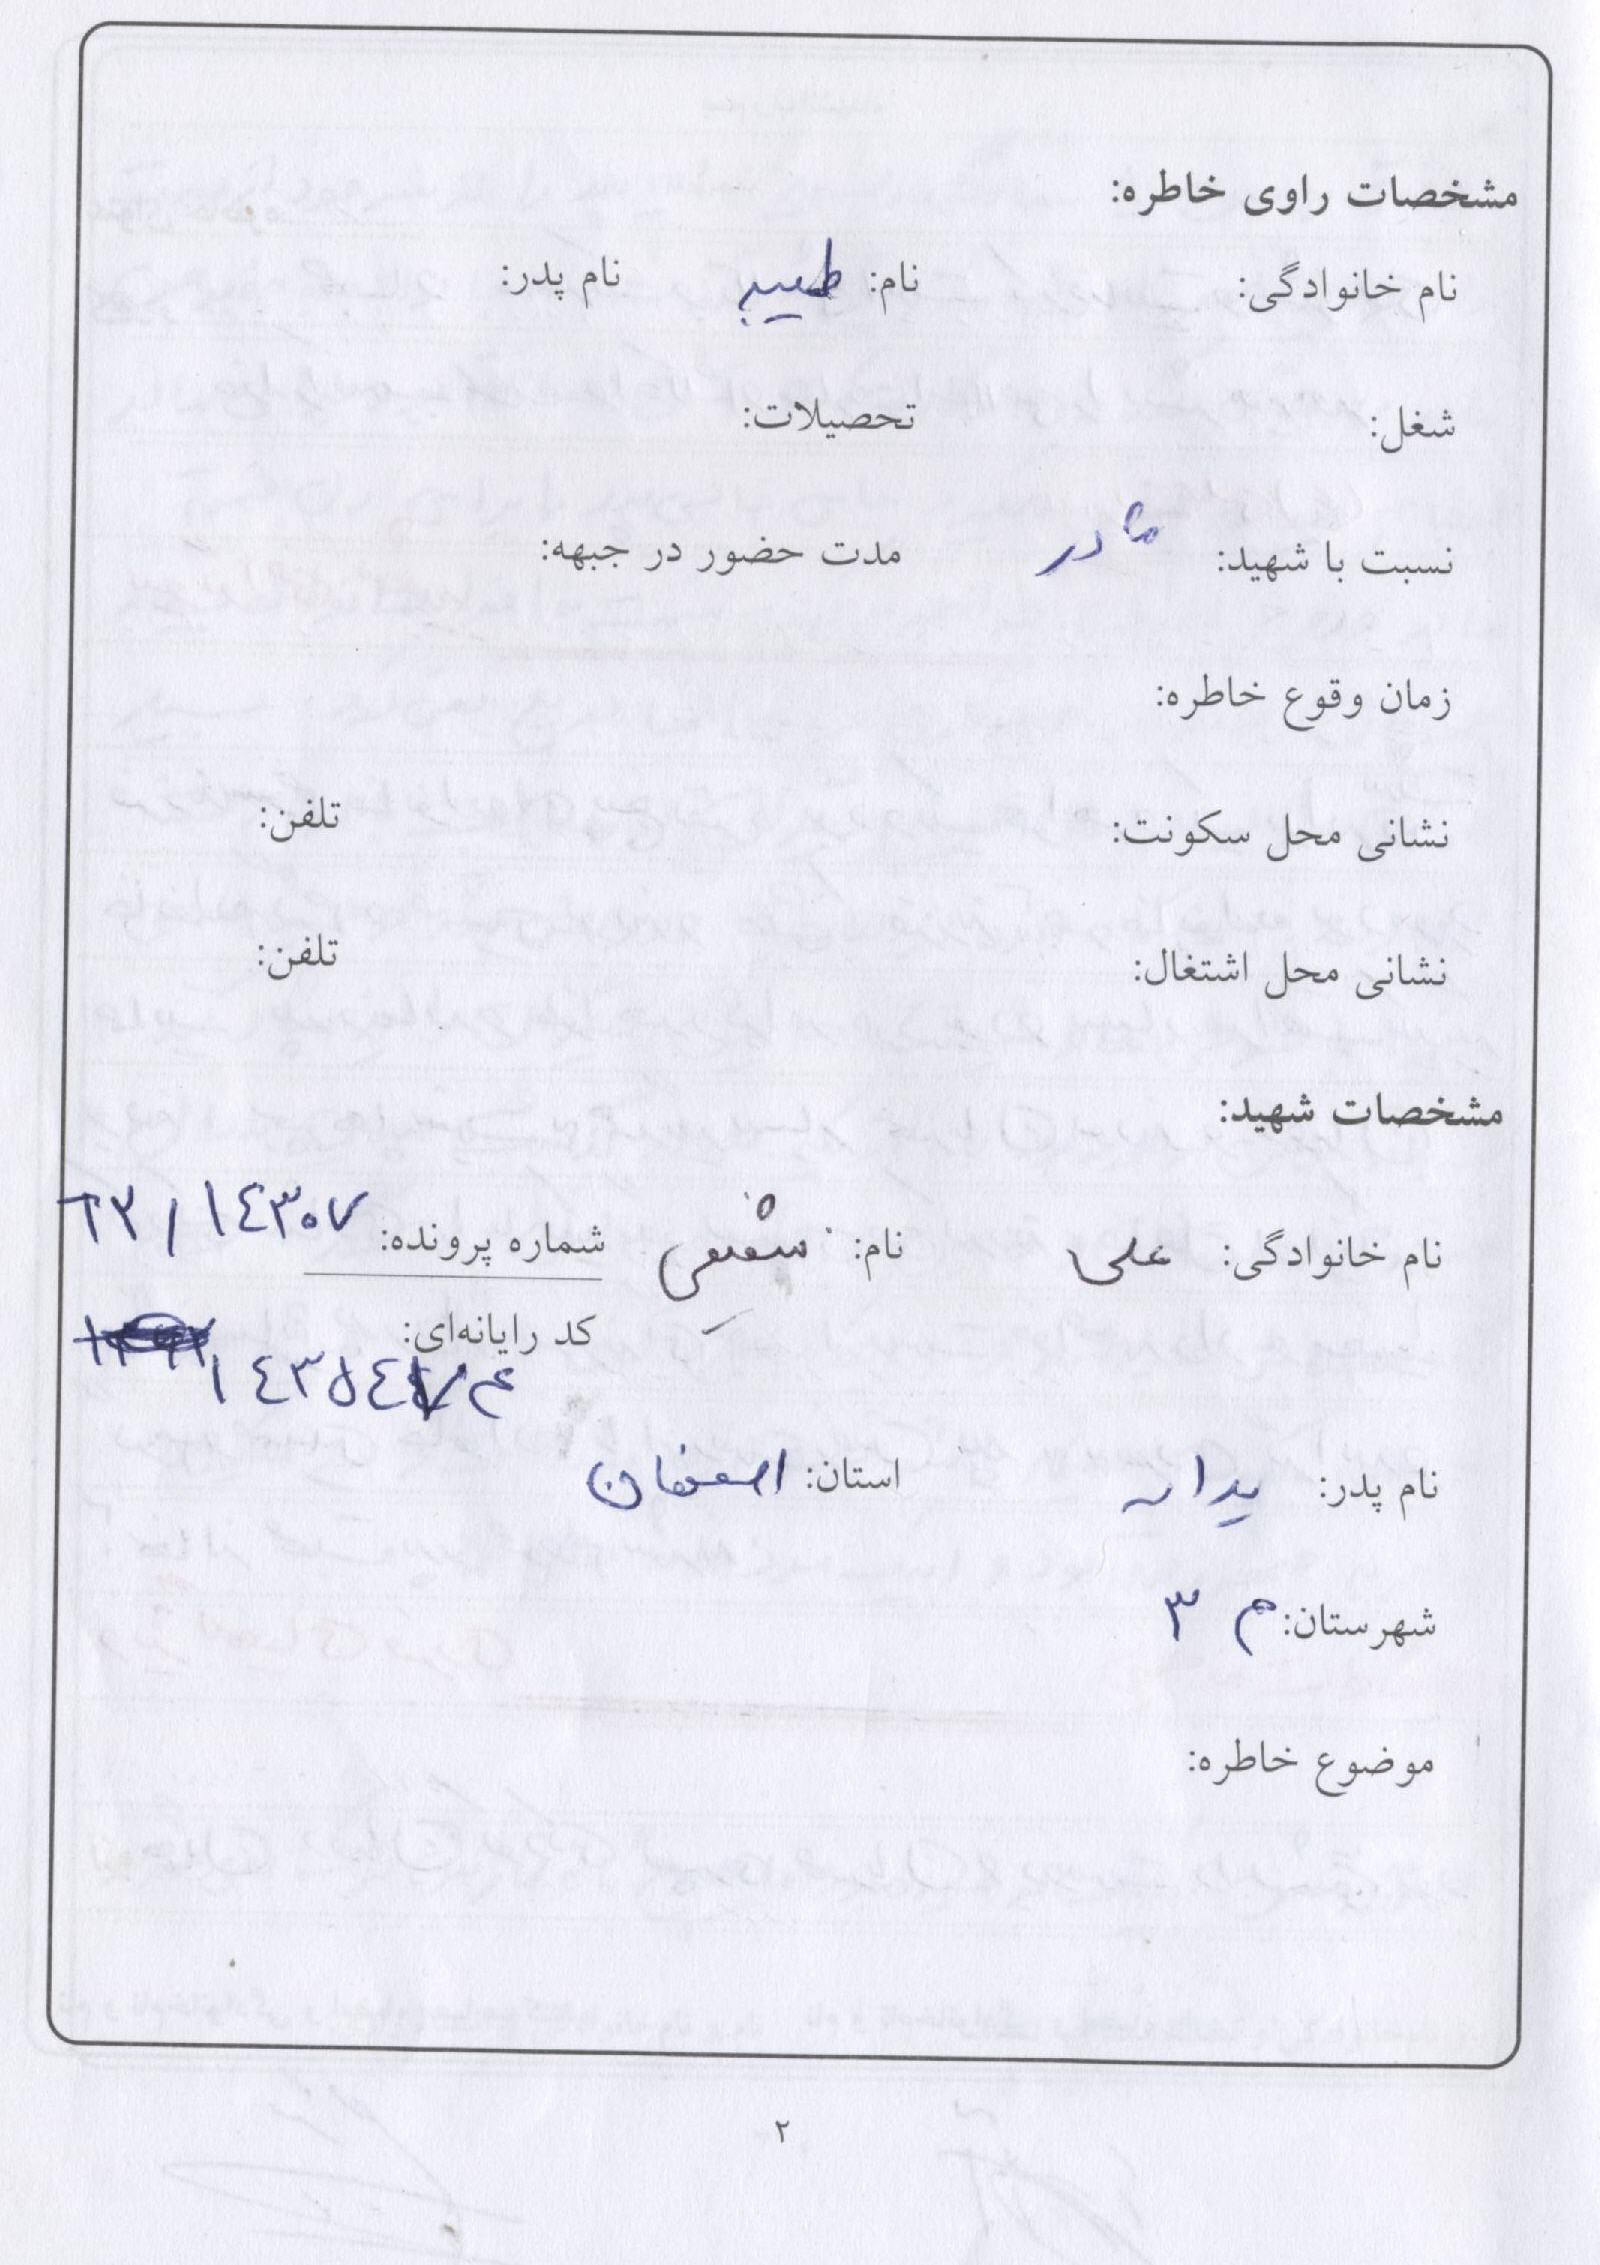 مشخصات راوی خاطره:
نام خانوادگی: نام: طیبه نام پدر:
شغل: تحصیلات:
نسبت با شهید: مادر مدت حضور در جبهه:
زمان وقوع خاطره:
نشانی محل سکونت: تلفن:
نشانی محل اشتغال: تلفن:
مشخصات شهید:
نام خانوادگی: علی نام: شفیعی شماره پرونده: ۶۲/۱۴۳۰۷
کد رایانه‌ای:
نام پدر: یداله استان: اصفهان
شهرستان: م ۳
موضوع خاطره:
۲